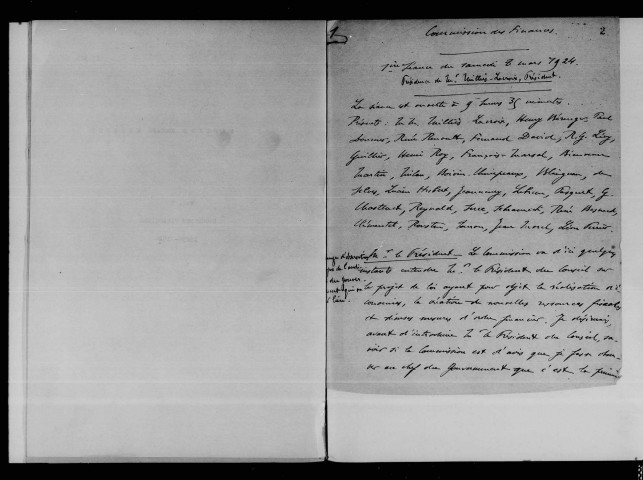 1
Commission des Finances.
2
1ère séance du samedi 8 mars 1924.
Présidence de Mr Milliès-Lacroix, Président.
La séance est ouverte à 9 heures 35 minutes.
Présents : M.M. Milliès Lacroix, Henry Bérenger, Paul
Doumer, René Renoult, Fernand David, R.G. Lévy,
Guillier, Henri Roy, François-Marsal, Bienvenu
Martin, Milan, Blaignan, de
Selves, Lucien Hubert, Jeanneney, Lebrun, Pasquet, G.
Chastenet, Reynald, Serre, Schrameck, René Besnard,
Clémentel, Rouston, Jean Morel, Léon Perrier.
Mr le Président - La Commission va d'ici quelques
instants entendre Mr le Président du Conseil sur
le projet de loi ayant pour objet la réalisation d'é-
conomies, la création de nouvelles ressources fiscales
et diverses mesures d'ordre financier. Je désirerais,
avant d'introduire Mr le Président du Conseil, sa-
voir si la Commission est d'avis que je fasse obser-
ver au chef du Gouvernement que c'est la première